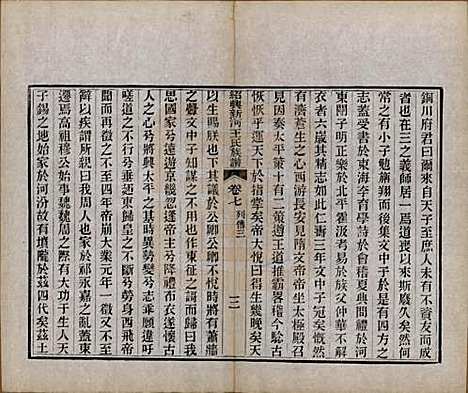 銅川府君曰爾來自天子至庶人未有不資友而成
者也在三之義師居一焉道喪以來斯廢久矣然何
常之有小子勉旃翔而後集文中子於是有四方之
志蓋受書於東海李育學詩於會稽夏典問禮於河
東關子明正樂於北平霍汲考易於族父仲華不解
衣者六歲其精志如此仁壽三年文中子冠矣慨然
有濟蒼生之心西游長安見隋文帝帝坐太極殿召
見因奏太平策十有二策遵王道推霸略稽今驗古
恢恢乎運天下於指掌矣帝大悅曰得生幾晚矣天
以生賜朕也下其議於公卿公卿不悅時將有蕭牆
之釁文中子知謀之不用也作東征之歌而歸曰我
思國家兮遠游京畿忽逢帝王兮降禮布衣遂懷古
人之心兮將興太平之基時異事變兮志乖願違吁
嗟道之不行兮垂翅東歸皇之不斷兮勞身西飛帝
聞而再徵之不至四年帝崩大業元年一徵又不至
辭以疾謂所親曰我周人也家於祁永嘉之亂蓋東
遷焉高祖穆公始事魏魏周之際有大功於生人天
子錫之地始家於河汾故有墳隴於茲四代矣茲土
紹興新河王氏族譜
卷七
列傳三
三